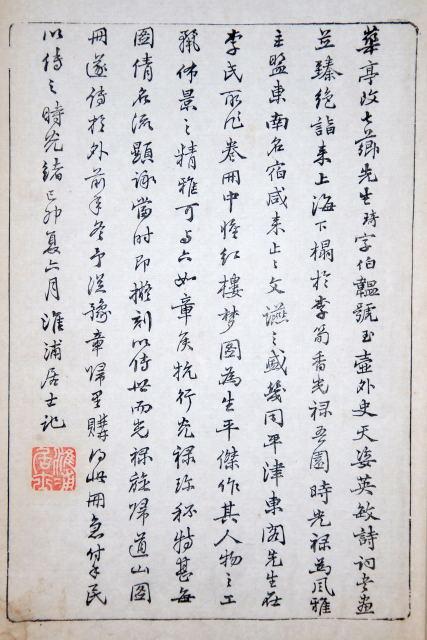 華亭改七薌先生琦字伯韞號玉壺外史天姿英敏詩詞書畫
並臻絕詣来上海下榻於李筍香光祿吾園時光祿為風雅
主盟東南名宿咸来止止文讌之盛幾同平津東閣先生在
李氏所作卷冊中惟紅樓夢圖為生平傑作其人物之工
麗佈景之精雅可與六如章侯抗行光祿珍秘特甚每
圖倩名流題詠當時即擬刻以傳世而光祿旋歸道山圖
冊遂傳於外前年冬予從豫章歸里購得此冊急付手民
以傳之時光緒己卯夏六月淮浦居士記
淮浦居士